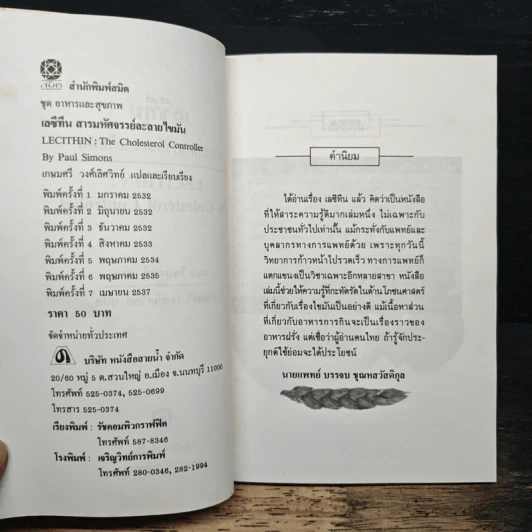 สมิต
สำนักพิมพ์สมิต
ชุด อาหารและสุขภาพ
เลซิทีน สารมหัศจรรย์ละลายไขมัน
LECITHIN : The Cholesterol Controller
By Paul Simons
เกษมศรี วงศ์เลิศวิทย์ แปลและเรียบเรียง
พิมพ์ครั้งที่ 1 มกราคม 2532
พิมพ์ครั้งที่ 2 มิถุนายน 2532
พิมพ์ครั้งที่ 3 ธันวาคม 2532
พิมพ์ครั้งที่ 4 สิงหาคม 2533
พิมพ์ครั้งที่ 5 พฤษภาคม 2534
พิมพ์ครั้งที่ 6 พฤษภาคม 2535
พิมพ์ครั้งที่ 7 เมษายน 2537
ราคา 50 บาท
จัดจำหน่ายทั่วประเทศ
บริษัท หนังสือสายน้ำ จำกัด
20/60 หมู่ 5 ต.สวนใหญ่ อ.เมือง จ.นนทบุรี 11000
โทรศัพท์ 525-0374, 525-0699
โทรสาร 525-0374
เรียงพิมพ์ : รัชคอมพิวกราฟฟิค
โทรศัพท์ 587-8346
โรงพิมพ์ : เจริญวิทย์การพิมพ์
โทรศัพท์ 280-0346, 282-1994
คำนิยม
ได้อ่านเรื่อง เลซิทีน แล้ว คิดว่าเป็นหนังสือ
ที่ให้สาระความรู้ดีมากเล่มหนึ่ง ไม่เฉพาะกับ
ประชาชนทั่วไปเท่านั้น แม้กระทั่งกับแพทย์และ
บุคลากรทางการแพทย์ด้วย เพราะทุกวันนี้
วิทยาการก้าวหน้าไปรวดเร็ว ทางการแพทย์ก็
แตกแขนงเป็นวิชาเฉพาะอีกหลายสาขา หนังสือ
เล่มนี้ช่วยให้ความรู้ที่กะทัดรัดในด้านโภชนศาสตร์
ที่เกี่ยวกับเรื่องไขมันเป็นอย่างดี แม้เนื้อหาส่วน
ที่เกี่ยวกับอาหารการกินจะเป็นเรื่องราวของ
อาหารฝรั่ง แต่เชื่อว่าผู้อ่านคนไทย ถ้ารู้จักประ-
ยุกต์ใช้ย่อมจะได้ประโยชน์
นายแพทย์ บรรจบ ชุณหสวัสดิกุล